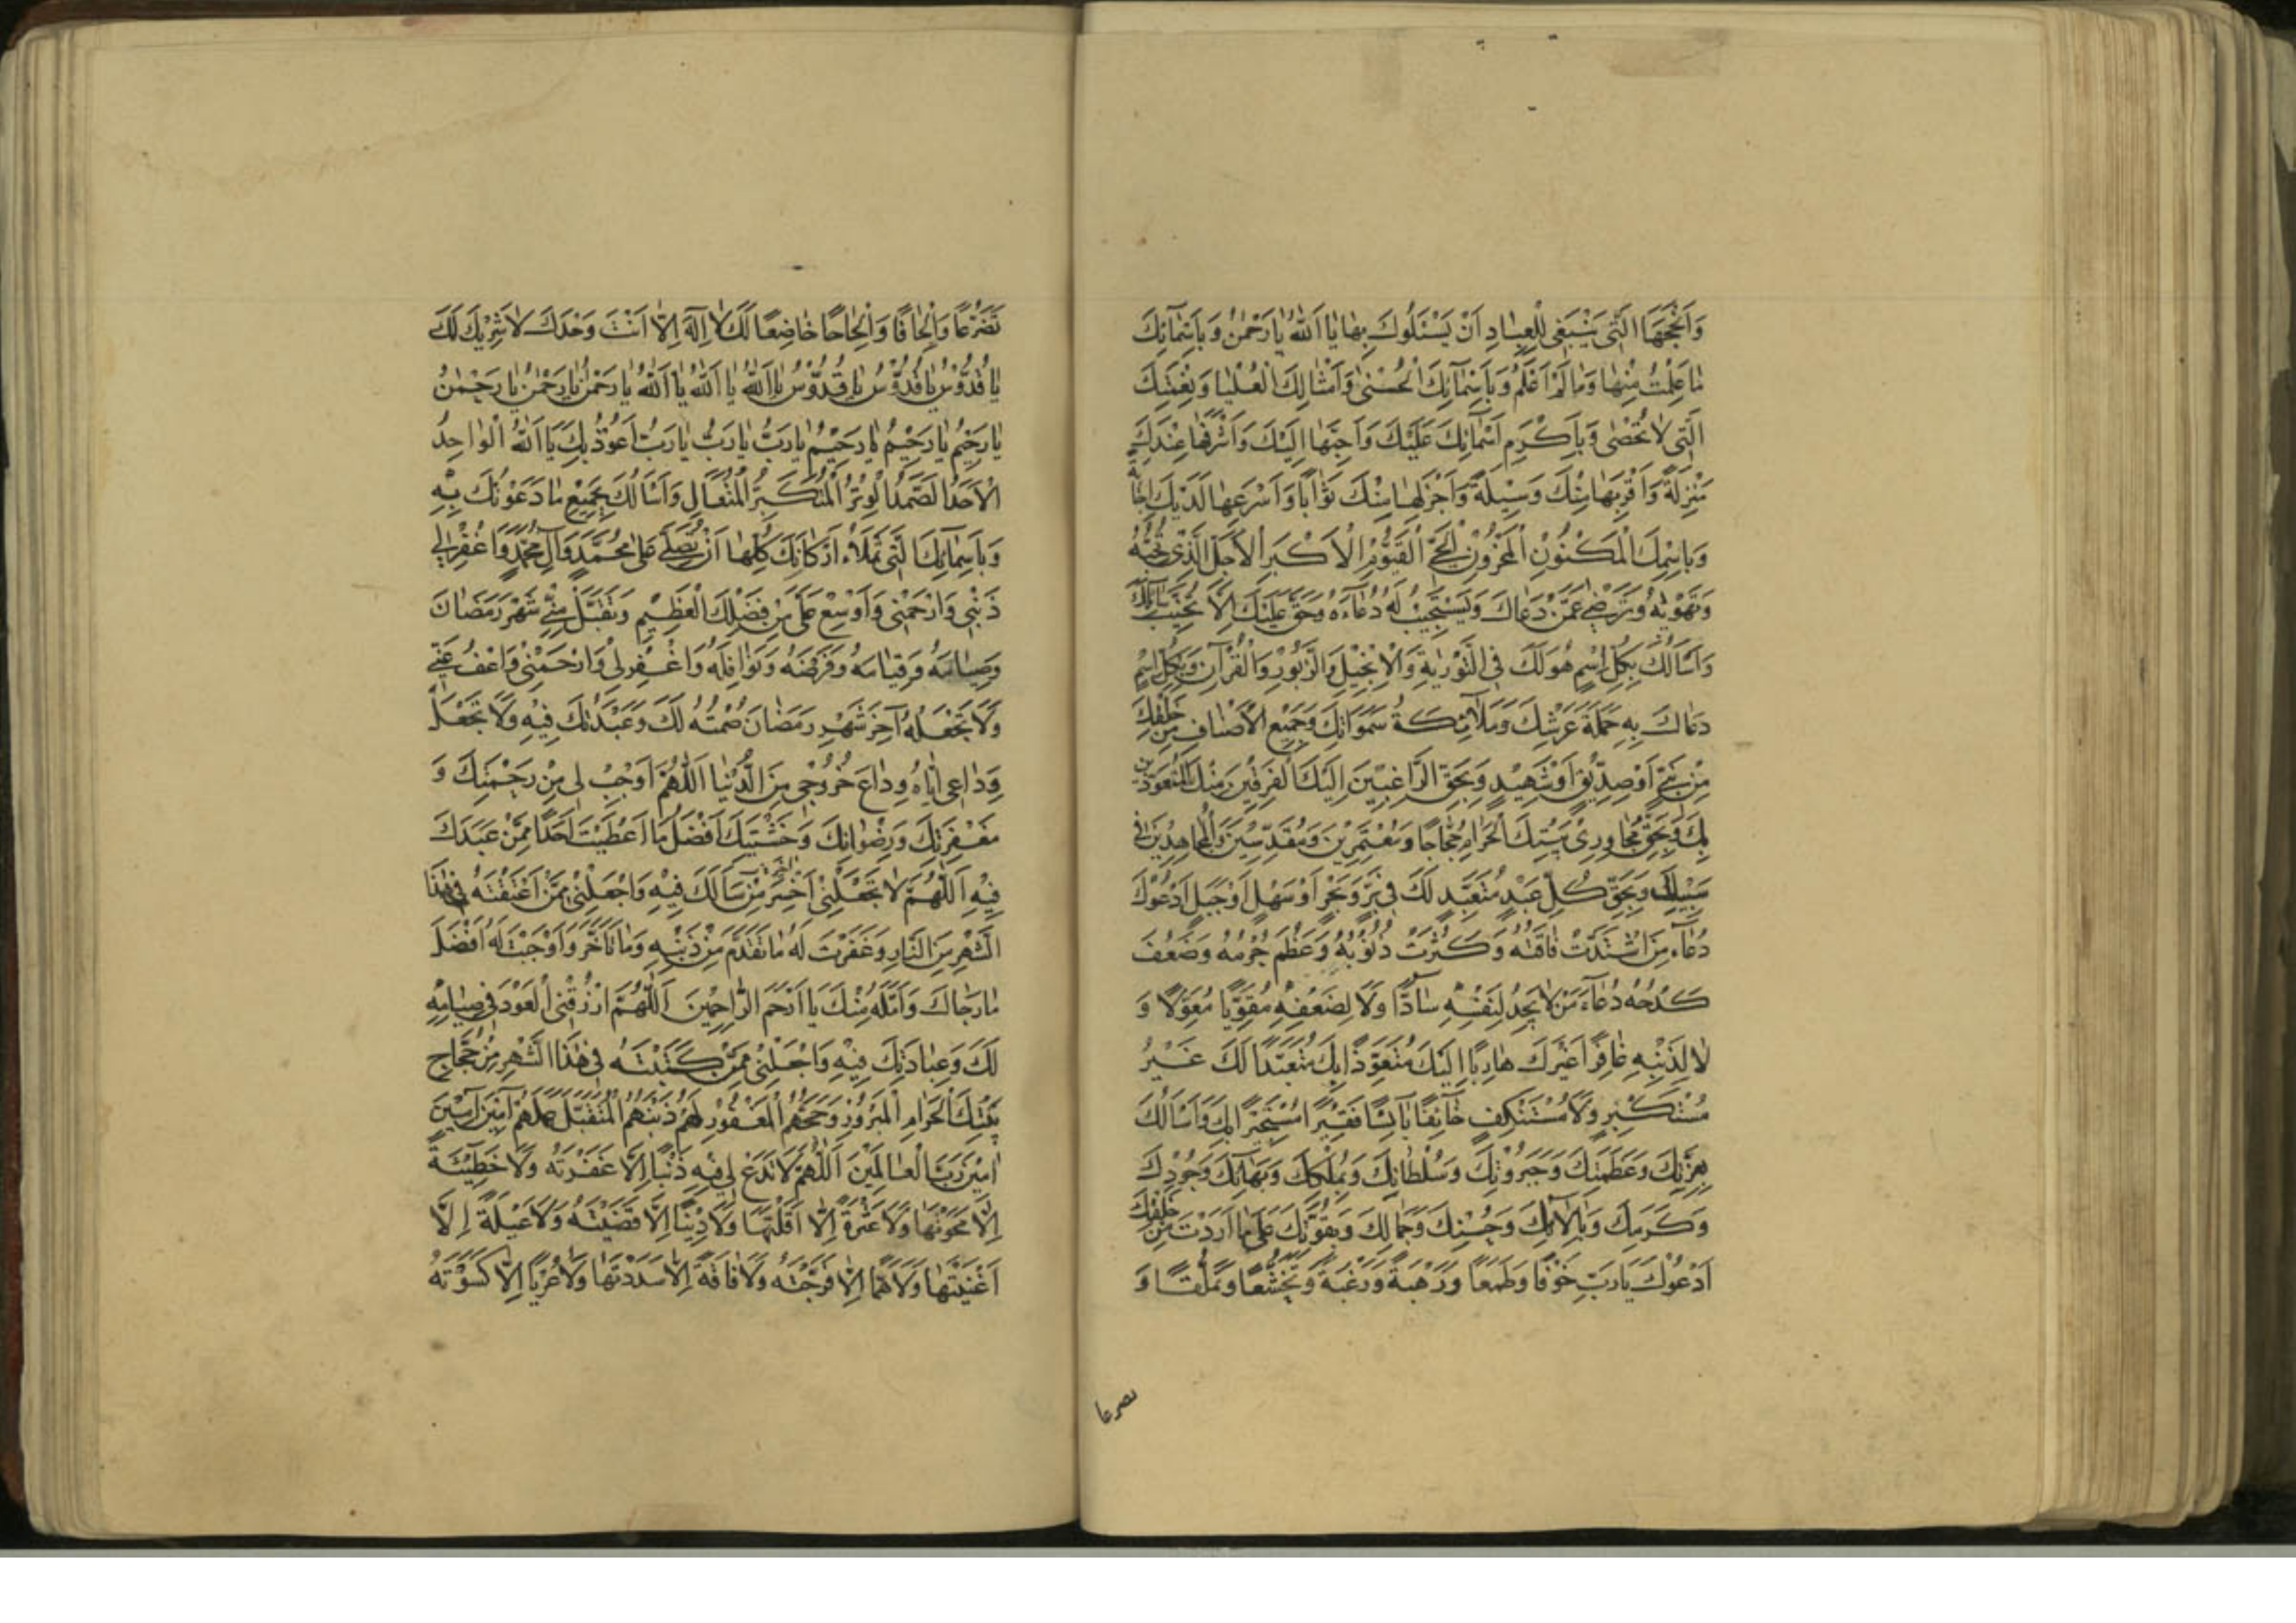 وَاَنْجَحِهَا الَّتِى يَنْبَغِى لِلْعِبٰادِ اَنْ يَسْئَلُوكَ بِهٰا يٰا اَللّٰهُ يٰا رَحْمٰنُ وَبِاَسْمٰآئِكَ
مٰا عَلِمْتُ مِنْهٰا وَمٰا لَمْ اَعْلَمْ وَبِاَسْمٰآئِكَ الْحُسْنىٰ وَاَمْثٰالِكَ الْعُلْيٰا وَنِعْمَتِكَ
الَّتِى لٰا تُحْصٰى وَبِاَكْرَمِ اَسْمٰآئِكَ عَلَيْكَ وَاَحَبِّهٰا اِلَيْكَ وَاَشْرَفِهٰا عِنْدَكَ
مَنْزِلَةً وَاَقْرَبِهٰا مِنْكَ وَسِيْلَةً وَاَجْزَلِهٰا مِنْكَ ثَوٰابًا وَاَسْرَعِهٰا لَدَيْكَ اِجٰابَةً
وَبِاسْمِكَ الْمَكْنُوْنِ الْمَخْزُوْنِ الْحَىِّ الْقَيُّوْمِ الْاَكْبَرِ الْاَجَلِّ الَّذِىْ تُحِبُّهُ
وَتَهْوٰيهُ وَتَرْضٰى عَمَّنْ دَعٰاكَ وَتَسْتَجِيْبُ لَهُ دُعٰآءَهُ وَحَقٌّ عَلَيْكَ اَلّٰا تُخَيِّبَ سٰآئِلَكَ
وَاَسْاَلُكَ بِكُلِّ اِسْمٍ هُوَ لَكَ فِى التَّوْرٰيةِ وَالْاِنْجِيْلِ وَالزَّبُوْرِ وَالْقُرْآنِ وَبِكُلِّ اِسْمٍ
دَعٰاكَ بِهِ حَمَلَةُ عَرْشِكَ وَمَلٰآئِكَةُ سَمٰوٰاتِكَ وَجَمِيْعُ الْاَصْنٰافِ مِنْ خَلْقِكَ
مِنْ نَبِىٍّ اَوْ صِدِّيْقٍ اَوْ شَهِيْدٍ وَبِحَقِّ الرّٰاغِبِيْنَ اِلَيْكَ الْفَرِقِيْنَ مِنْكَ الْمُتَعَوِّذِيْنَ
بِكَ وَبِحَقِّ مُجٰاوِرِىْ بَيْتِكَ الْحَرٰامِ حُجّٰاجًا وَمُعْتَمِرِيْنَ وَمُقَدِّسِيْنَ وَالْمُجٰاهِدِيْنَ فِى
سَبِيْلِكَ وَبِحَقِّ كُلِّ عَبْدٍ مُتَعَبِّدٍ لَكَ فِى بَرٍّ وَبَحْرٍ اَوْ سَهْلٍ اَوْ جَبَلٍ اَدْعُوْكَ
دُعٰآءَ مَنِ اشْتَدَّتْ فٰاقَتُهُ وَكَثُرَتْ ذُنُوْبُهُ وَعَظُمَ جُرْمُهُ وَضَعُفَ
كَدْحُهُ دُعٰآءَ مَنْ لٰا يَجِدُ لِنَفْسِهِ سٰآدًّا وَلَا لِضَعْفِهِ مُقَوِّيًا مُعَوِّلًا وَ
لٰا لِذَنْبِهِ غٰافِرًا غَيْرَكَ هٰارِبًا اِلَيْكَ مُتَعَوِّذًا بِكَ مُتَعَبِّدًا لَكَ غَيْرَ
مُسْتَكْبِرٍ وَلَا مُسْتَنْكِفٍ خٰآئِفًا بٰآئِسًا فَقِيْرًا مُسْتَجِيْرًا بِكَ وَاَسْاَلُكَ
بِعِزَّتِكَ وَعَظَمَتِكَ وَجَبَرُوْتِكَ وَسُلْطٰانِكَ وَبِمُلْكِكَ وَبَهٰآئِكَ وَجُوْدِكَ
وَكَرَمِكَ وَبِاٰلٰآئِكَ وَحُسْنِكَ وَجَمٰالِكَ وَبِقُوَّتِكَ عَلٰى مٰا اَرَدْتَ مِنْ خَلْقِكَ
اَدْعُوْكَ يٰا رَبِّ خَوْفًا وَطَمَعًا وَرَهْبَةً وَرَغْبَةً وَتَخَشُّعًا وَتَمَلُّقًا وَ
تضرعا
تَضَرُّعًا وَاِلْحٰافًا وَاِلْحٰاحًا خٰاضِعًا لَكَ لٰا اِلٰهَ اِلّٰا اَنْتَ وَحْدَكَ لٰا شَرِيْكَ لَكَ
يٰا قُدُّوْسُ يٰا قُدُّوْسُ يٰا قُدُّوْسُ يٰا اَللّٰهُ يٰا اَللّٰهُ يٰا اَللّٰهُ يٰا رَحْمٰنُ يٰا رَحْمٰنُ يٰا رَحْمٰنُ
يٰا رَحِيْمُ يٰا رَحِيْمُ يٰا رَحِيْمُ يٰا رَبُّ يٰا رَبُّ يٰا رَبُّ اَعُوْذُ بِكَ يٰا اَللّٰهُ الْوٰاحِدُ
الْاَحَدُ الصَّمَدُ الْوِتْرُ الْمُتَكَبِّرُ الْمُتَعٰالِ وَاَسْاَلُكَ بِجَمِيْعِ مٰا دَعَوْتُكَ بِهِ
وَبِاَسْمٰآئِكَ الَّتِى تَمْلَاُ اَرْكٰانَكَ كُلَّهٰا اَنْ تُصَلِّىَ عَلٰى مُحَمَّدٍ وَآلِ مُحَمَّدٍ وَاغْفِرْ لِى
ذَنْبِى وَارْحَمْنِى وَاَوْسِعْ عَلَىَّ مِنْ فَضْلِكَ الْعَظِيْمِ وَتَقَبَّلْ مِنّى شَهْرَ رَمَضٰانَ
وَصِيٰامَهُ وَقِيٰامَهُ وَفَرْضَهُ وَنَوٰافِلَهُ وَاغْفِرْ لِى وَارْحَمْنِى وَاعْفُ عَنّى
وَلَا تَجْعَلْهُ آخِرَ شَهْرِ رَمَضٰانَ صُمْتُهُ لَكَ وَعَبَدْتُكَ فِيْهِ وَلَا تَجْعَلْ
وَدٰاعِى اِيّٰاهُ وِدٰاعَ خُرُوْجِى مِنَ الدُّنْيٰا اَللّٰهُمَّ اَوْجِبْ لِى مِنْ رَحْمَتِكَ وَ
مَغْفِرَتِكَ وَرِضْوٰانِكَ وَخَشْيَتِكَ اَفْضَلَ مٰا اَعْطَيْتَ اَحَدًا مِمَّنْ عَبَدَكَ
فِيْهِ اَللّٰهُمَّ لٰا تَجْعَلْنِى اَخْسَرَ مَنْ سَاَلَكَ فِيْهِ وَاجْعَلْنِى مِمَّنْ اَعْتَقْتَهُ فِى هٰذَا
الشَّهْرِ مِنَ النّٰارِ وَغَفَرْتَ لَهُ مٰا تَقَدَّمَ مِنْ ذَنْبِهِ وَمٰا تَاَخَّرَ وَاَوْجَبْتَ لَهُ اَفْضَلَ
مٰا رَجٰاكَ وَاَمَّلَهُ مِنْكَ يٰا اَرْحَمَ الرّٰاحِمِيْنَ اَللّٰهُمَّ ارْزُقْنِى الْعَوْدَ فِى صِيٰامِهِ
لَكَ وَعِبٰادَتِكَ فِيْهِ وَاجْعَلْنِى مِمَّنْ كَتَبْتَهُ فِى هٰذَا الشَّهْرِ مِنْ حُجّٰاجِ
بَيْتِكَ الْحَرٰامِ الْمَبْرُوْرِ حَجُّهُمُ الْمَغْفُوْرِ لَهُمْ ذَنْبُهُمُ الْمُتَقَبَّلِ عَمَلُهُمْ آمِيْنَ آمِيْنَ
آمِيْنَ رَبَّ الْعٰالَمِيْنَ اَللّٰهُمَّ لَا تَدَعْ لِى فِيْهِ ذَنْبًا اِلّٰا غَفَرْتَهُ وَلَا خَطِيْئَةً
اِلّٰا مَحَوْتَهٰا وَلَا عَثْرَةً اِلّٰا اَقَلْتَهٰا وَلَا دَيْنًا اِلّٰا قَضَيْتَهُ وَلَا عَيْلَةً اِلّٰا
اَغْنَيْتَهٰا وَلَا هَمًّا اِلّٰا فَرَّجْتَهُ وَلَا فٰاقَةً اِلّٰا سَدَدْتَهٰا وَلَا عُرْيًا اِلّٰا كَسَوْتَهُ